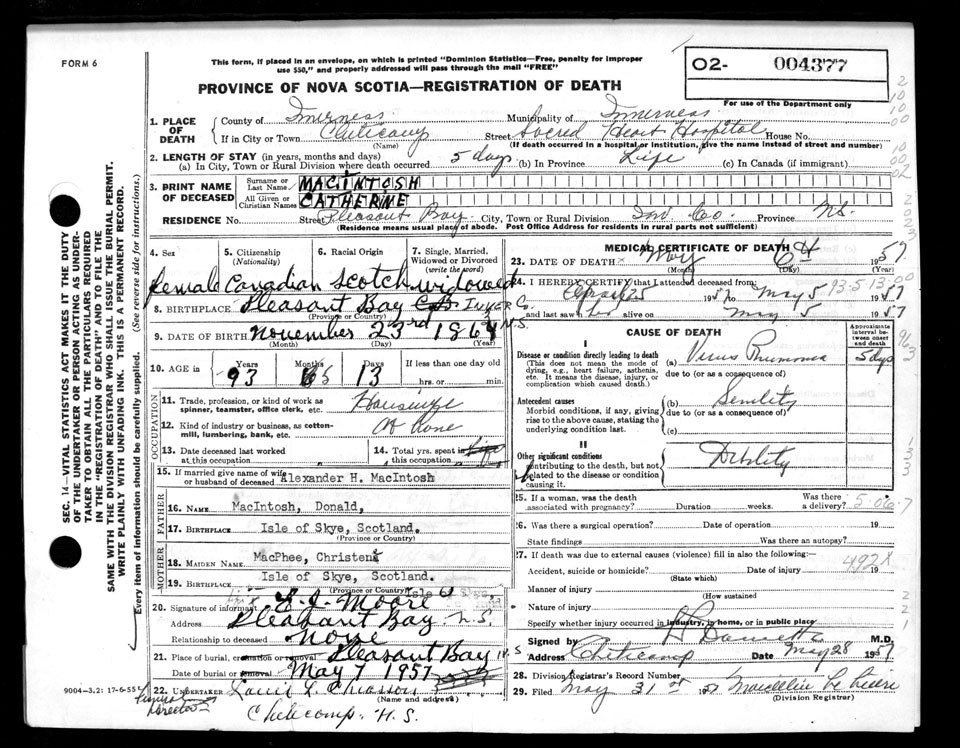 FORM 6
This form, if placed in an envelope, on which is printed "Dominion Statistics—Free, penalty for improper
use $50," and properly addressed will pass through the mail "FREE"
O2- 004377
PROVINCE OF NOVA SCOTIA—REGISTRATION OF DEATH
For use of the Department only
SEC. 14—VITAL STATISTICS ACT MAKES IT THE DUTY
OF THE UNDERTAKER OR PERSON ACTING AS UNDER-
TAKER TO OBTAIN ALL THE PARTICULARS REQUIRED
IN THE "REGISTRATION OF DEATH" AND TO FILE THE
SAME WITH THE DIVISION REGISTRAR WHO SHALL ISSUE THE BURIAL PERMIT.
WRITE PLAINLY WITH UNFADING INK. THIS IS A PERMANENT RECORD.
Every item of information should be carefully supplied. (See reverse side for instructions.)
1. PLACE OF DEATH
County of Inverness Municipality of Inverness
If in City or Town Cheticamp Street Sacred Heart Hospital House No.
(Name) (If death occurred in a hospital or institution, give the name instead of street and number)
2. LENGTH OF STAY (in years, months and days)
(a) In City, Town or Rural Division where death occurred 5 days (b) In Province Life (c) In Canada (if immigrant)
3. PRINT NAME OF DECEASED
Surname or Last Name MACINTOSH
All Given or Christian Names CATHERINE
RESIDENCE No. Street Pleasant Bay City, Town or Rural Division Inv. Co. Province N.S.
(Residence means usual place of abode. Post Office Address for residents in rural parts not sufficient)
4. Sex
5. Citizenship (Nationality)
6. Racial Origin
7. Single, Married, Widowed or Divorced (write the word)
female Canadian Scotch widowed
8. BIRTHPLACE Pleasant Bay C.B. Inver Co. N.S.
(Province or Country)
9. DATE OF BIRTH November 23rd 1864
(Month) (Day) (Year)
10. AGE in Years Months Days If less than one day
93 5 13 hrs. or min.
OCCUPATION
11. Trade, profession, or kind of work as spinner, teamster, office clerk, etc. Housewife
12. Kind of industry or business, as cotton-mill, lumbering, bank, etc. At Home
13. Date deceased last worked at this occupation
14. Total yrs. spent in this occupation
15. If married give name of wife or husband of deceased Alexander H. MacIntosh
FATHER
16. NAME MacIntosh, Donald,
17. BIRTHPLACE Isle of Skye, Scotland.
(Province or Country)
MOTHER
18. MAIDEN NAME MacPhee, Christena
19. BIRTHPLACE Isle of Skye, Scotland.
(Province or Country)
20. Signature of informant E. J. Moore
Address Pleasant Bay N.S.
Relationship to deceased none
21. Place of burial, cremation or removal Pleasant Bay N.S
Date of burial or removal May 7 1957
22. UNDERTAKER Chiasson
(Name and address)
Funeral Director
Cheticamp. N.S.
9004-3.2: 17-6-55
MEDICAL CERTIFICATE OF DEATH
23. DATE OF DEATH May 6th 1957
(Month) (Day) (Year)
24. I HEREBY CERTIFY that I attended deceased from:
April 25 1957 to May 5 1957
and last saw her alive on May 5 1957
CAUSE OF DEATH
Approximate interval between onset and death
I
Disease or condition directly leading to death
(This does not mean the mode of dying, e.g., heart failure, asthenia, etc. It means the disease, injury, or complication which caused death.)
(a) Virus Pneumonia 5 dys
due to (or as a consequence of)
Antecedent causes
Morbid conditions, if any, giving rise to the above cause, stating the underlying condition last.
(b) Senility
due to (or as a consequence of)
(c)
II
Other significant conditions
contributing to the death, but not related to the disease or condition causing it.
Debility
25. If a woman, was the death associated with pregnancy? Duration weeks. Was there a delivery?
5-06-7
26. Was there a surgical operation? Date of operation 19
State findings Was there an autopsy?
27. If death was due to external causes (violence) fill in also the following:—
Accident, suicide or homicide? Date of injury 19
(State which)
492X
Manner of injury
(How sustained
Nature of injury
Specify whether injury occurred in industry, in home, or in public place
Signed by M.D.
Address Cheticamp Date May 28 1957
28. Division Registrar's Record Number
29. Filed May 31st 1957
(Division Registrar)